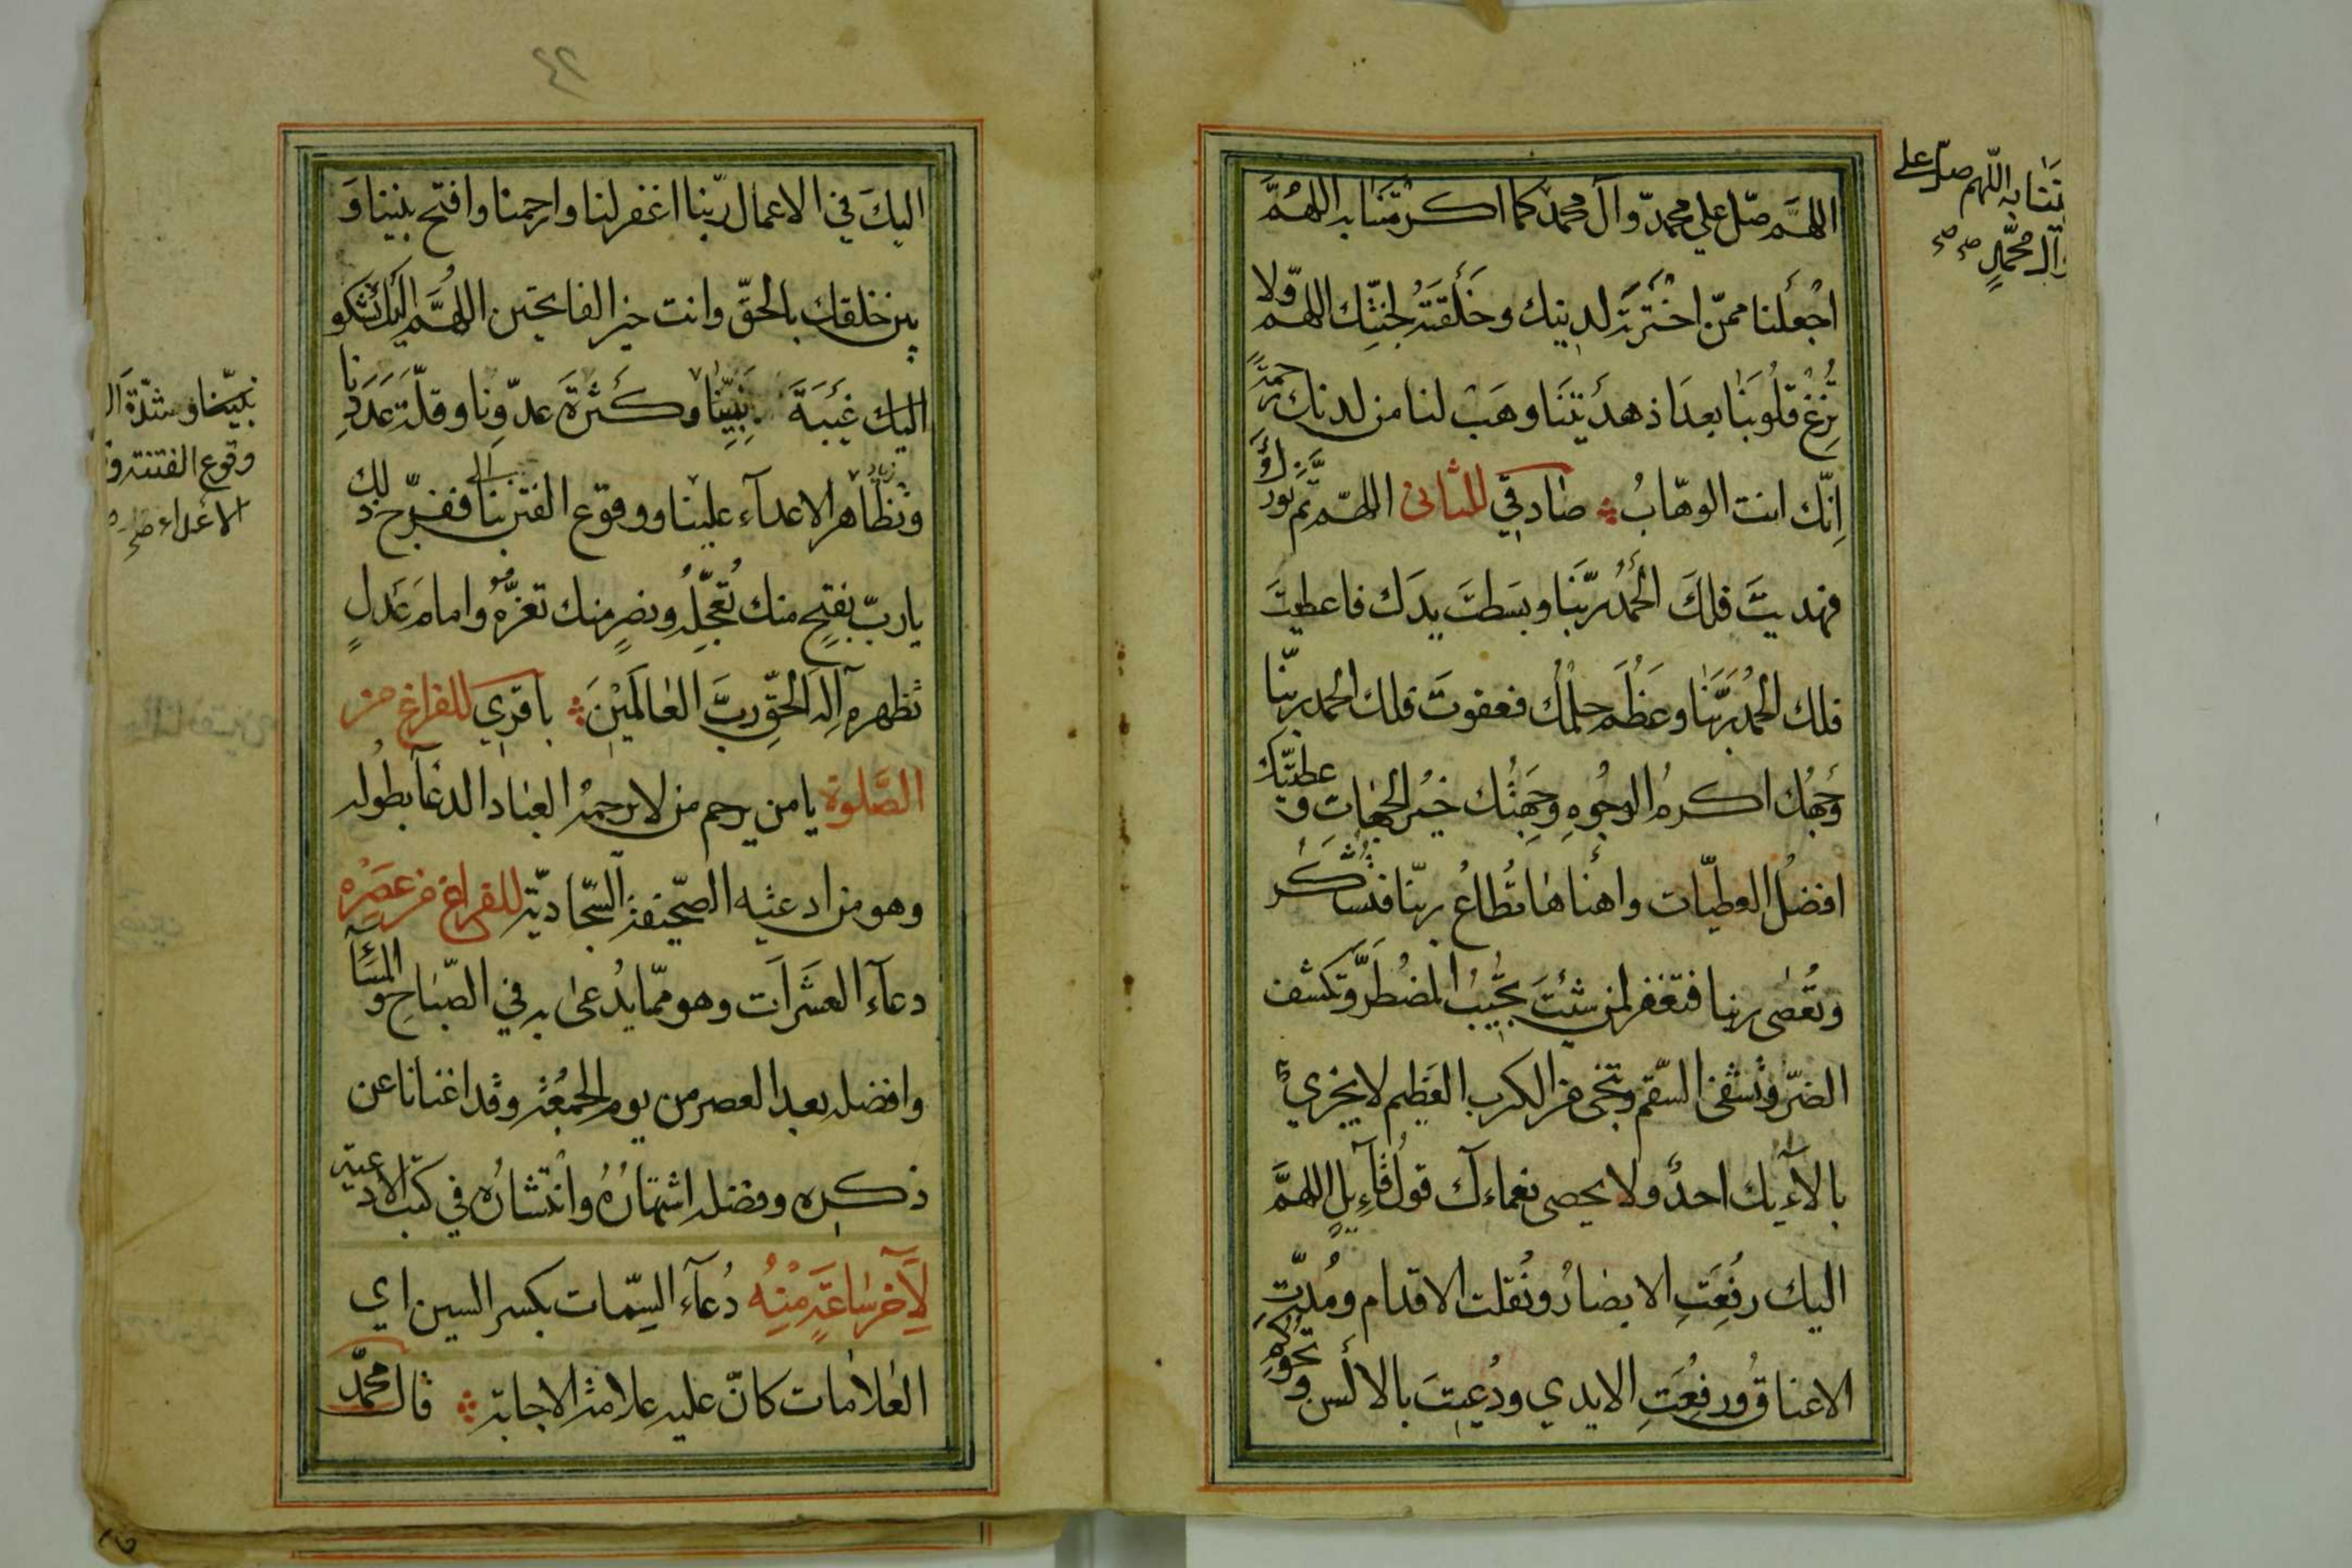 اللهَّم صّل علي محمدّ وآل محمدّ كما اكرمتنا به اللهُمَّ
اجْعَلنا ممّن اخْتَرتَه لدينك وخَلَقتَه لجنّتِك اللهم ولا
تُزِغْ قلُوبَنٰا بعدَاذ هدَيْتَنَا وهَبْ لنا من لدنك رحمةً
اِنّك انت الوهّابُ صٰادقي للثانى اللهّم تمَّ نورك
فهديتَ فلكَ الحَمْدُ ربّنَا وبسَطتَ يدَك فاعطيتَ
فلك الحمْدُ ربَّنٰا وعَظُمَ حِلْمُك فعفوتَ فلك الحمد ربّنا
وَجهُك اكرمُ الوجُوهِ وجِهَتُك خيُر الجهٰاتِ و عطيّتك
افضلُ العطيّات واهنأهٰا تُطٰاعُ ربّنا فتشكر
وتُعصٰى ربنا فتغفر لمن شئتَ تجُيبُ المضُطَرَّ وتكشف
الضرّ وتشفى السّقم وتنجى من الكرب العَظيم لا يجزي
بالآءِيك احدٌ ولا يحصى نعماءك قولُ قآءِيلٍ اللهمَّ
اليك رفُعَتِ الابصٰارُ ونُقلت الاقدام ومُدّتِ
الاعناقُ ورفِعُتِ الايدي ودُعيتَ بالالسن و
يتنٰا به اللّهم صلّ على
وآل محمّدٍ صح صح
اليكَ في الاعمال ربّنا اغفر لنا وارحمنا وافتح بيننا وَ
بين خلقك بالحقّ وانت خير الفاتحين اللهُمَّ اليك نشكو
اليك غَيبَةَ نَبِيّنٰا وكَثرةَ عدّوِنا وقلّةَ عَدَدِنا
وتَظٰاهر الاعدآء علينا ووقوع الفتن بنا ففرّج ذلك
يا ربّ بفتحٍ منك تُعَجّلُه ونصرٍ منك تعزُّه وامام عَدلٍ
تظهره آله الحقِّ ربَّ العٰالَميْنَ باقري للفراغ من
الصَّلوة يا من يرحم من لا يرحمه العبٰاد الدعآ بطُوله
وهو من ادعيه الصّحيفة السّجّاديّة للفراغ من عصْره
دعآء العشَرَات وهو ممّا يدُعى به في الصّباحِ والمسَآء
وافضله بعد العصر من يوم الجمعُة وقد اغنانا عن
ذكره وفضله اشتهارُهُ وانتشارُه في كتب الادعية
لِآخرِ سٰاعَةٍ مِنْهُ دُعآء السِّمات بكسر السين اي
العٰلامٰات كانّ عليه علامة الاجابة قال محمّد
نبيّنا وشدّة
وقوع الفتنة و
الأعداء صح